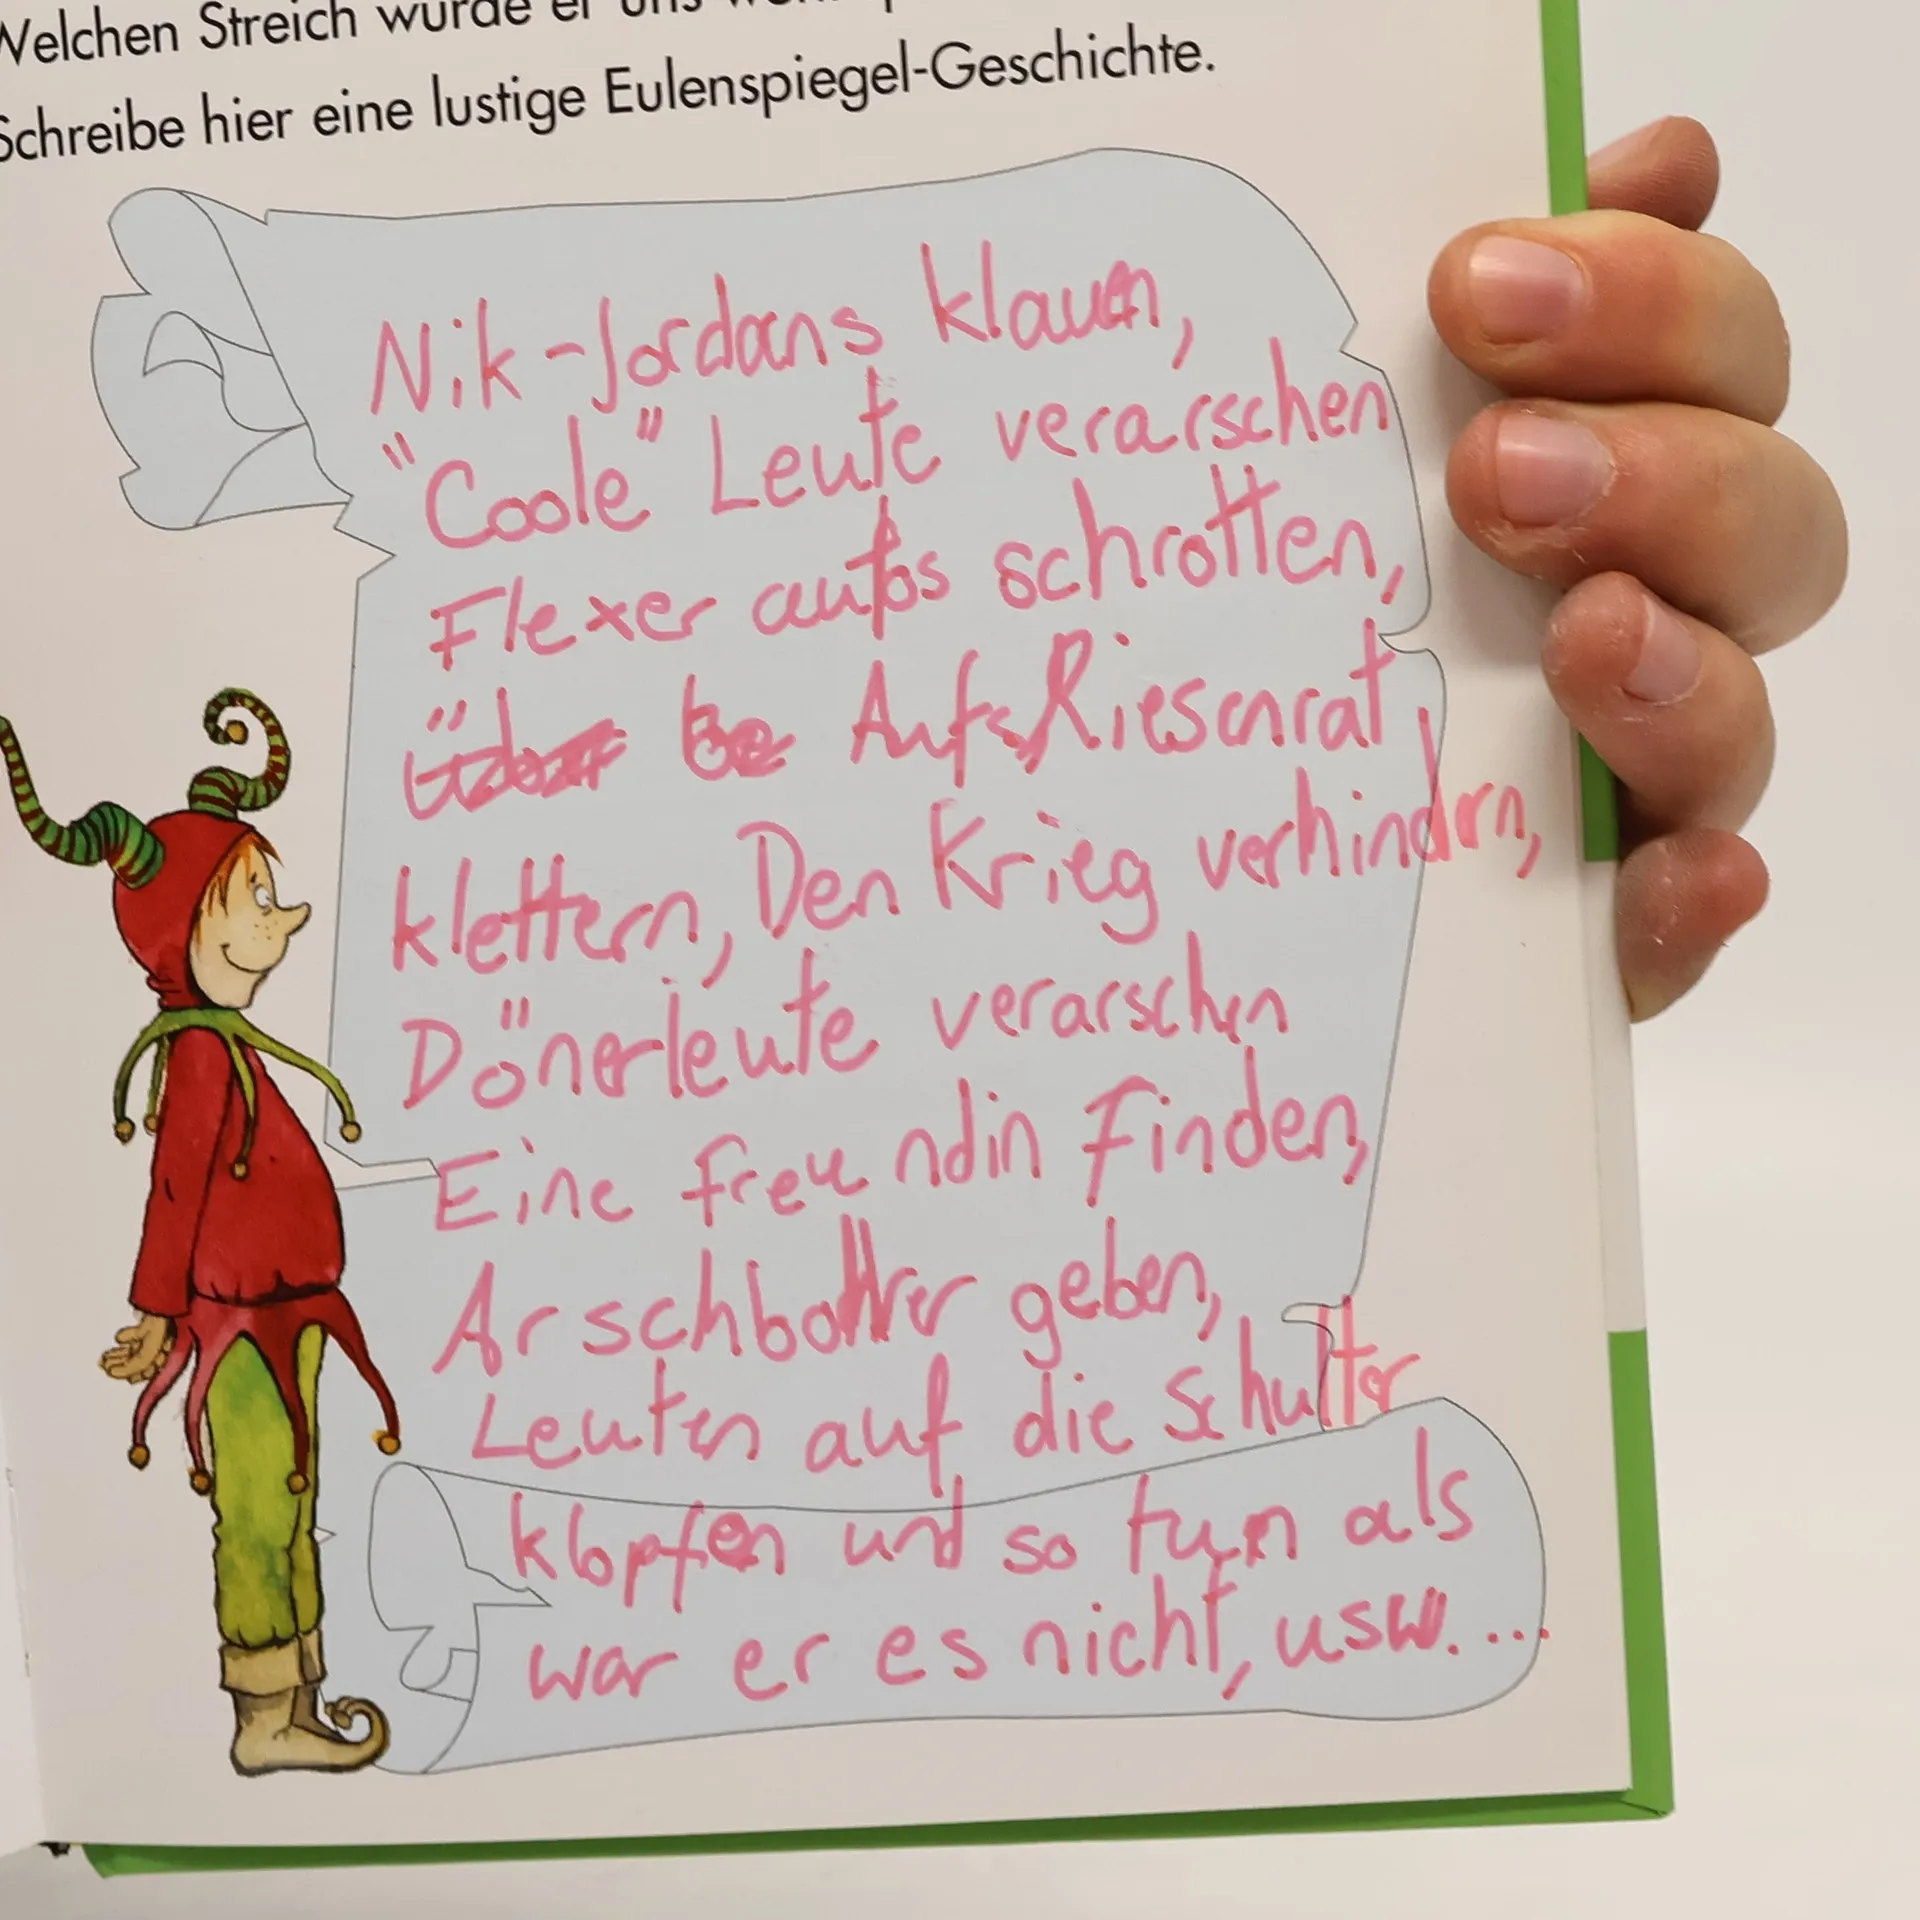 Welchen Streich würde er uns
Schreibe hier eine lustige Eulenspiegel-Geschichte.
Nik-Jordans klauen,
"Coole" Leute verarschen
Flexer autos schrotten,
Aufs Riesenrat
klettern, Den Krieg verhindern,
Dönerleute verarschen
Eine freundin Finden,
Arschbohrer geben,
Leuten auf die Schulter
klopfen und so tun als
war er es nicht, usw....